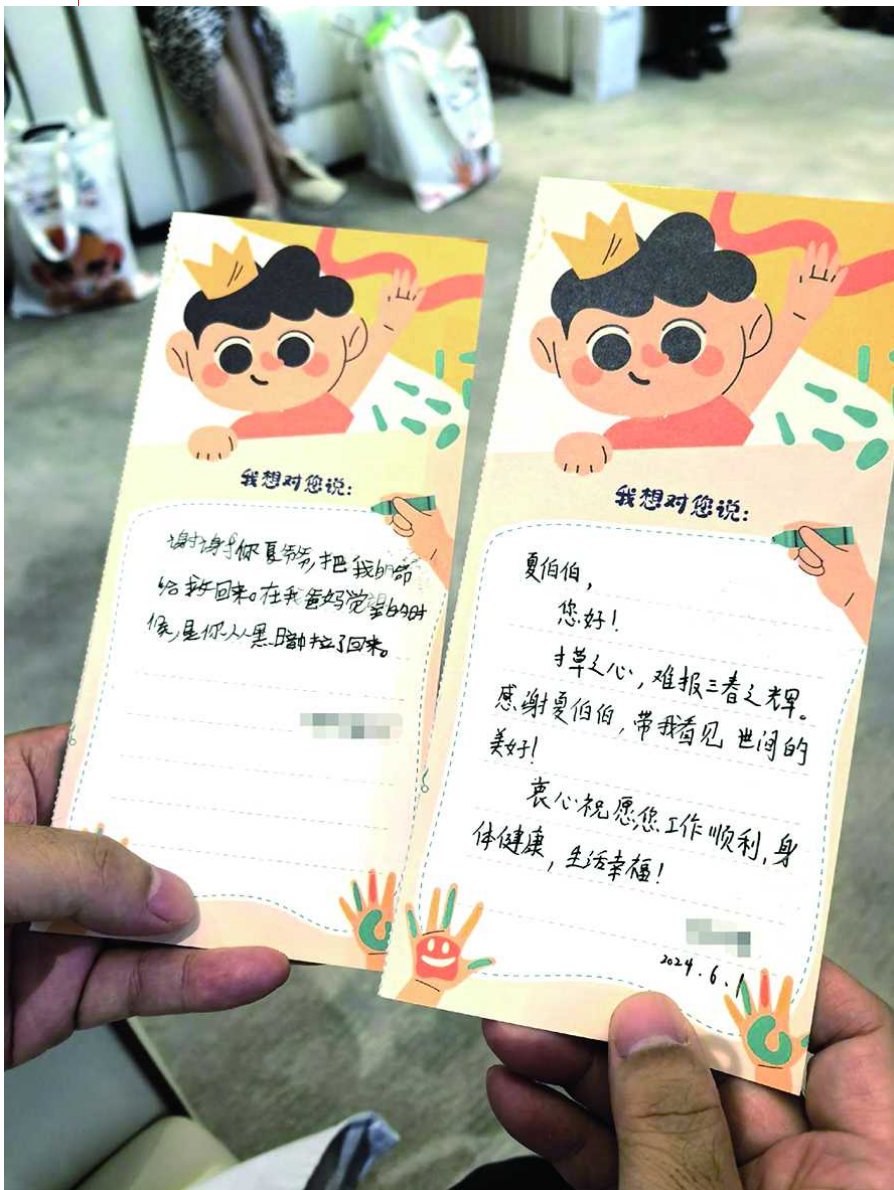 我想对您说:
谢谢你夏爷爷,把我的命
给救回来。在我爸妈觉望的时
候,是你从黑暗中拉了回来。
我想对您说:
夏伯伯,
您好!
寸草之心,难报三春之辉。
感谢夏伯伯,带我看见世间的
美好!
衷心祝愿您工作顺利,身
体健康,生活幸福!
2024.6.1